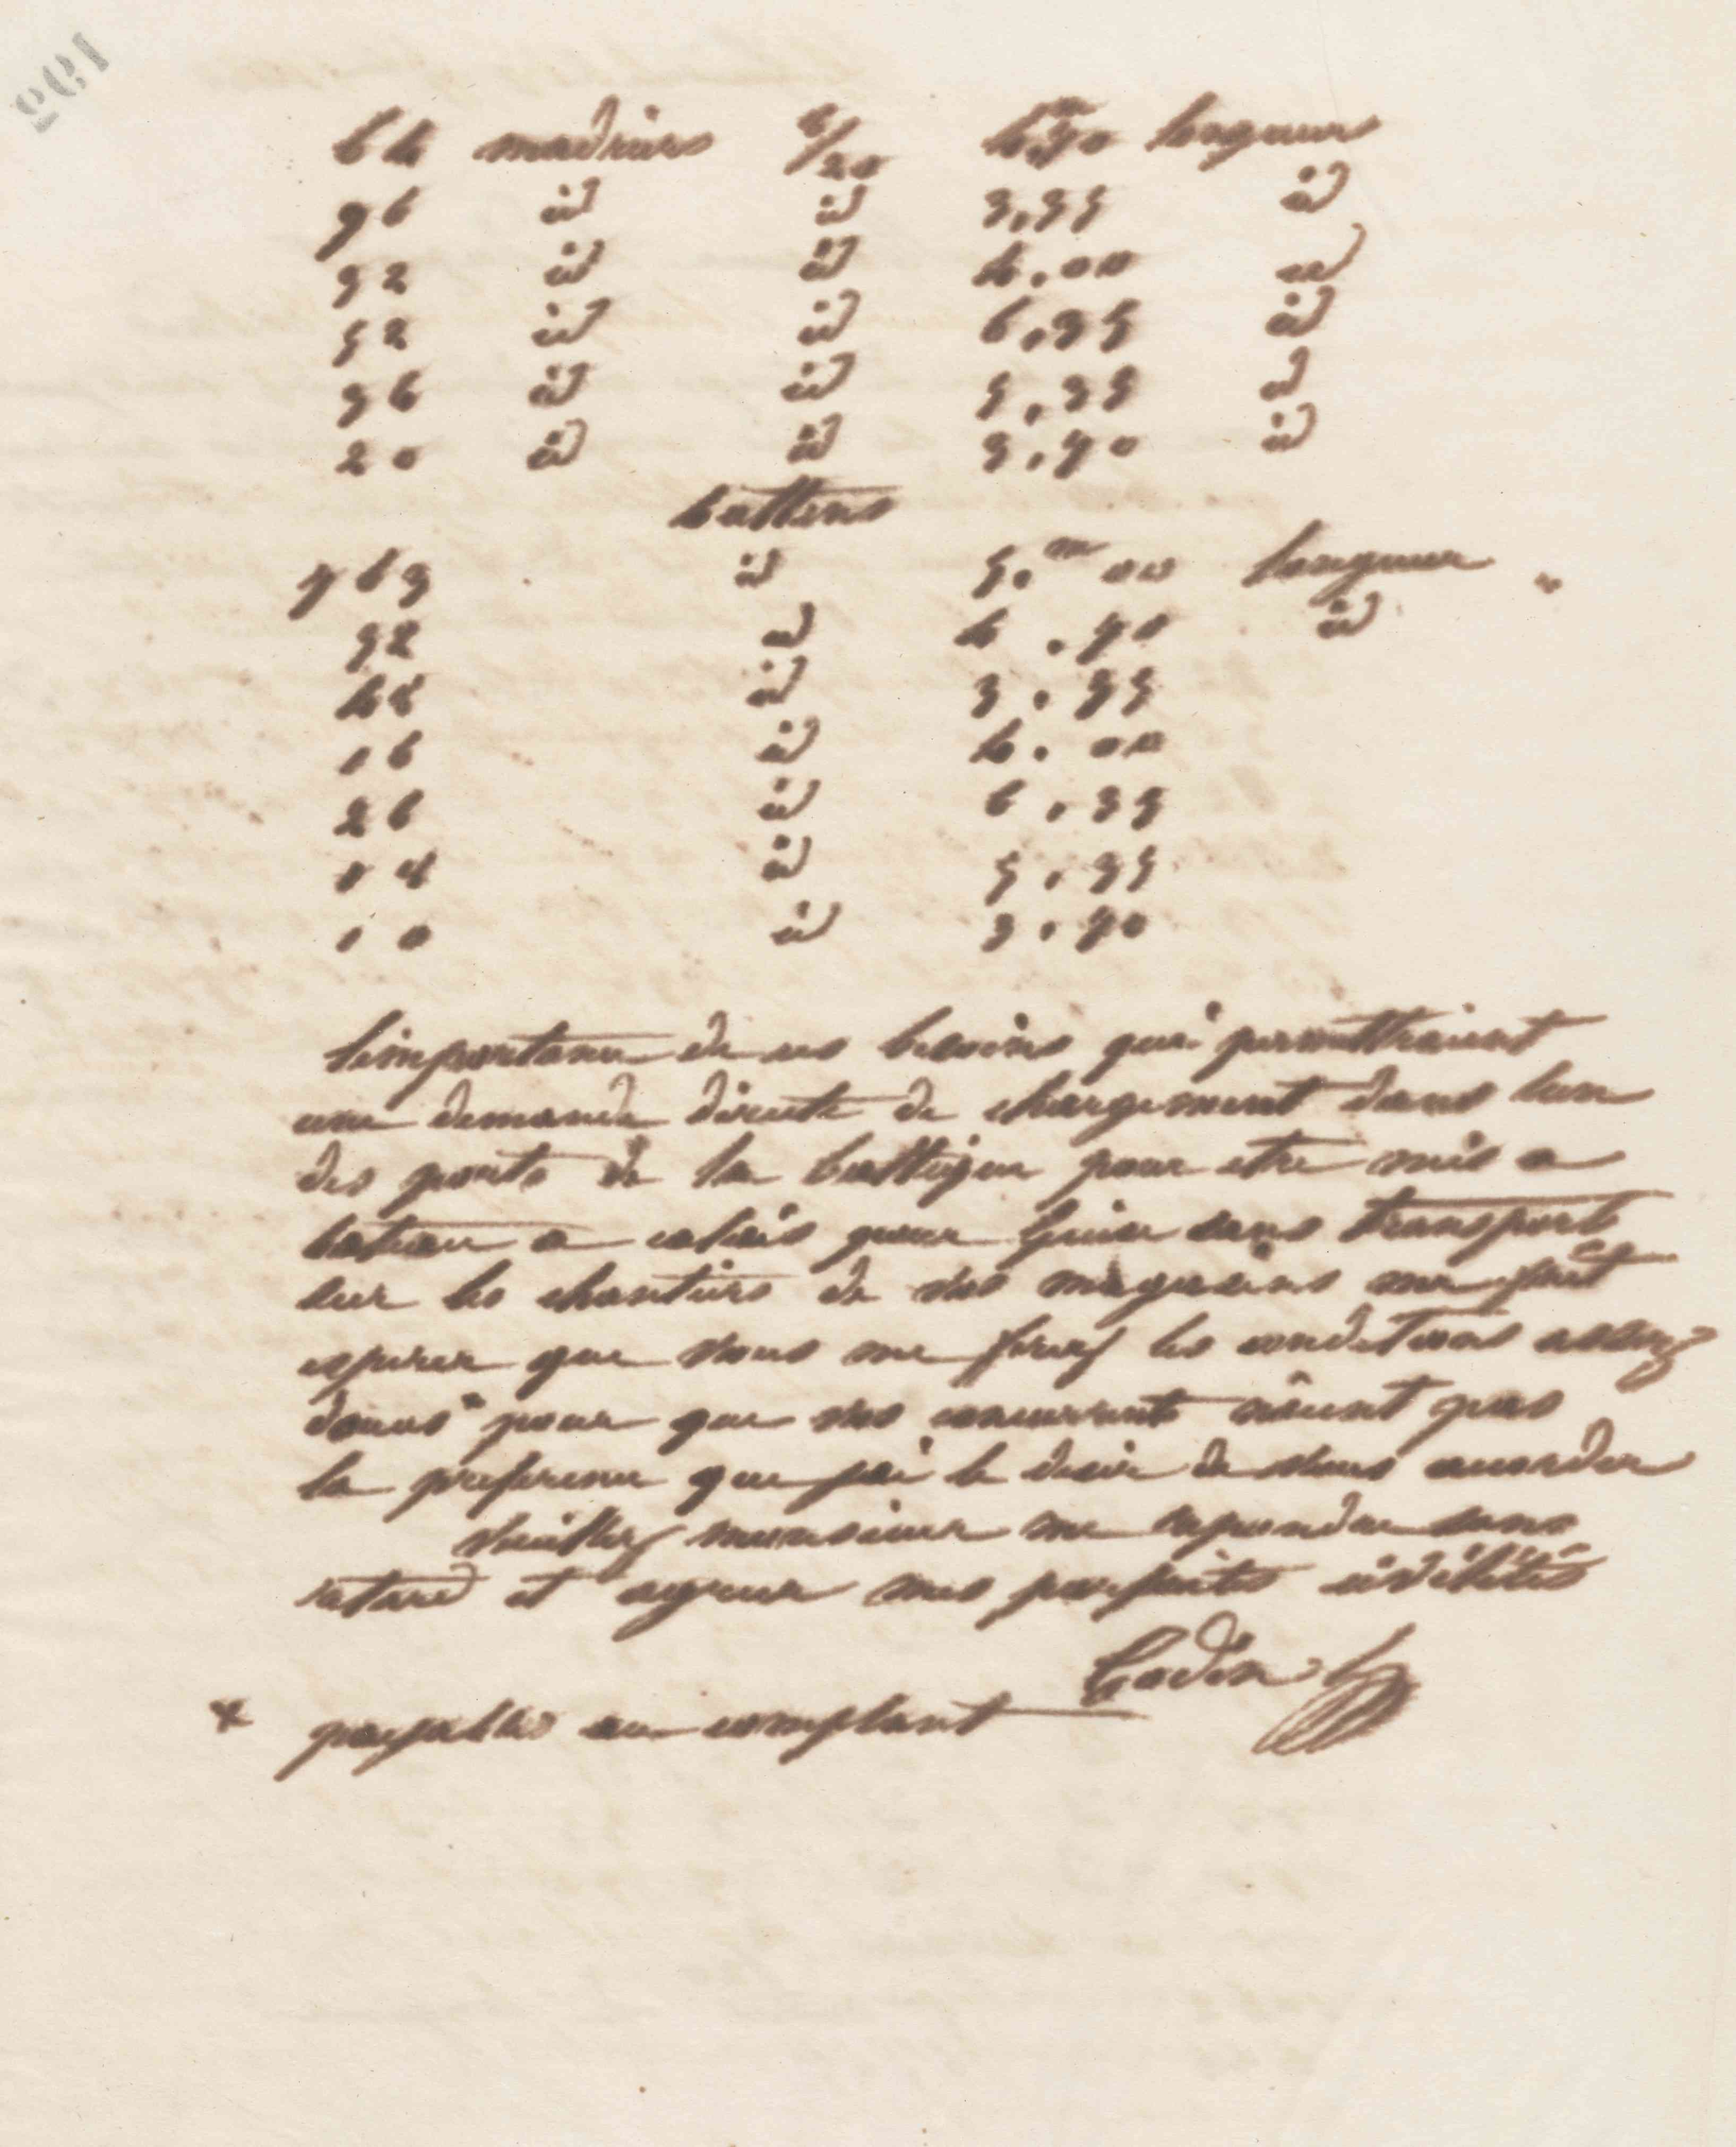 64 madriers 8/20 4,m70 longueur
96 id id 3,35 id
32 id id 4,00 id
52 id id 6,35 id
36 id id 5,35 id
20 id id 3,70 id
battens
763 id 5.m00 longueur
32 id 4.70 id
48 id 3.35
16 id 4.00
26 id 6,35
18 id 5,35
10 id 3,70
limportance de ces besoins qui permettraient
une demande directe de chargement dans lun
des ports de la baltique pour etre mis a
bateau a calais pour Guise sans transport
sur les chantiers de vos magasins me fait
esperer que vous me ferez les conditions assez
douces* pour que vos concurrents n'aient pas
la preference que jai le desir de vous accorder
Veuillez monsieur me repondre sans
retard et agreer mes parfaites civilités
Godin
x payables au comptant